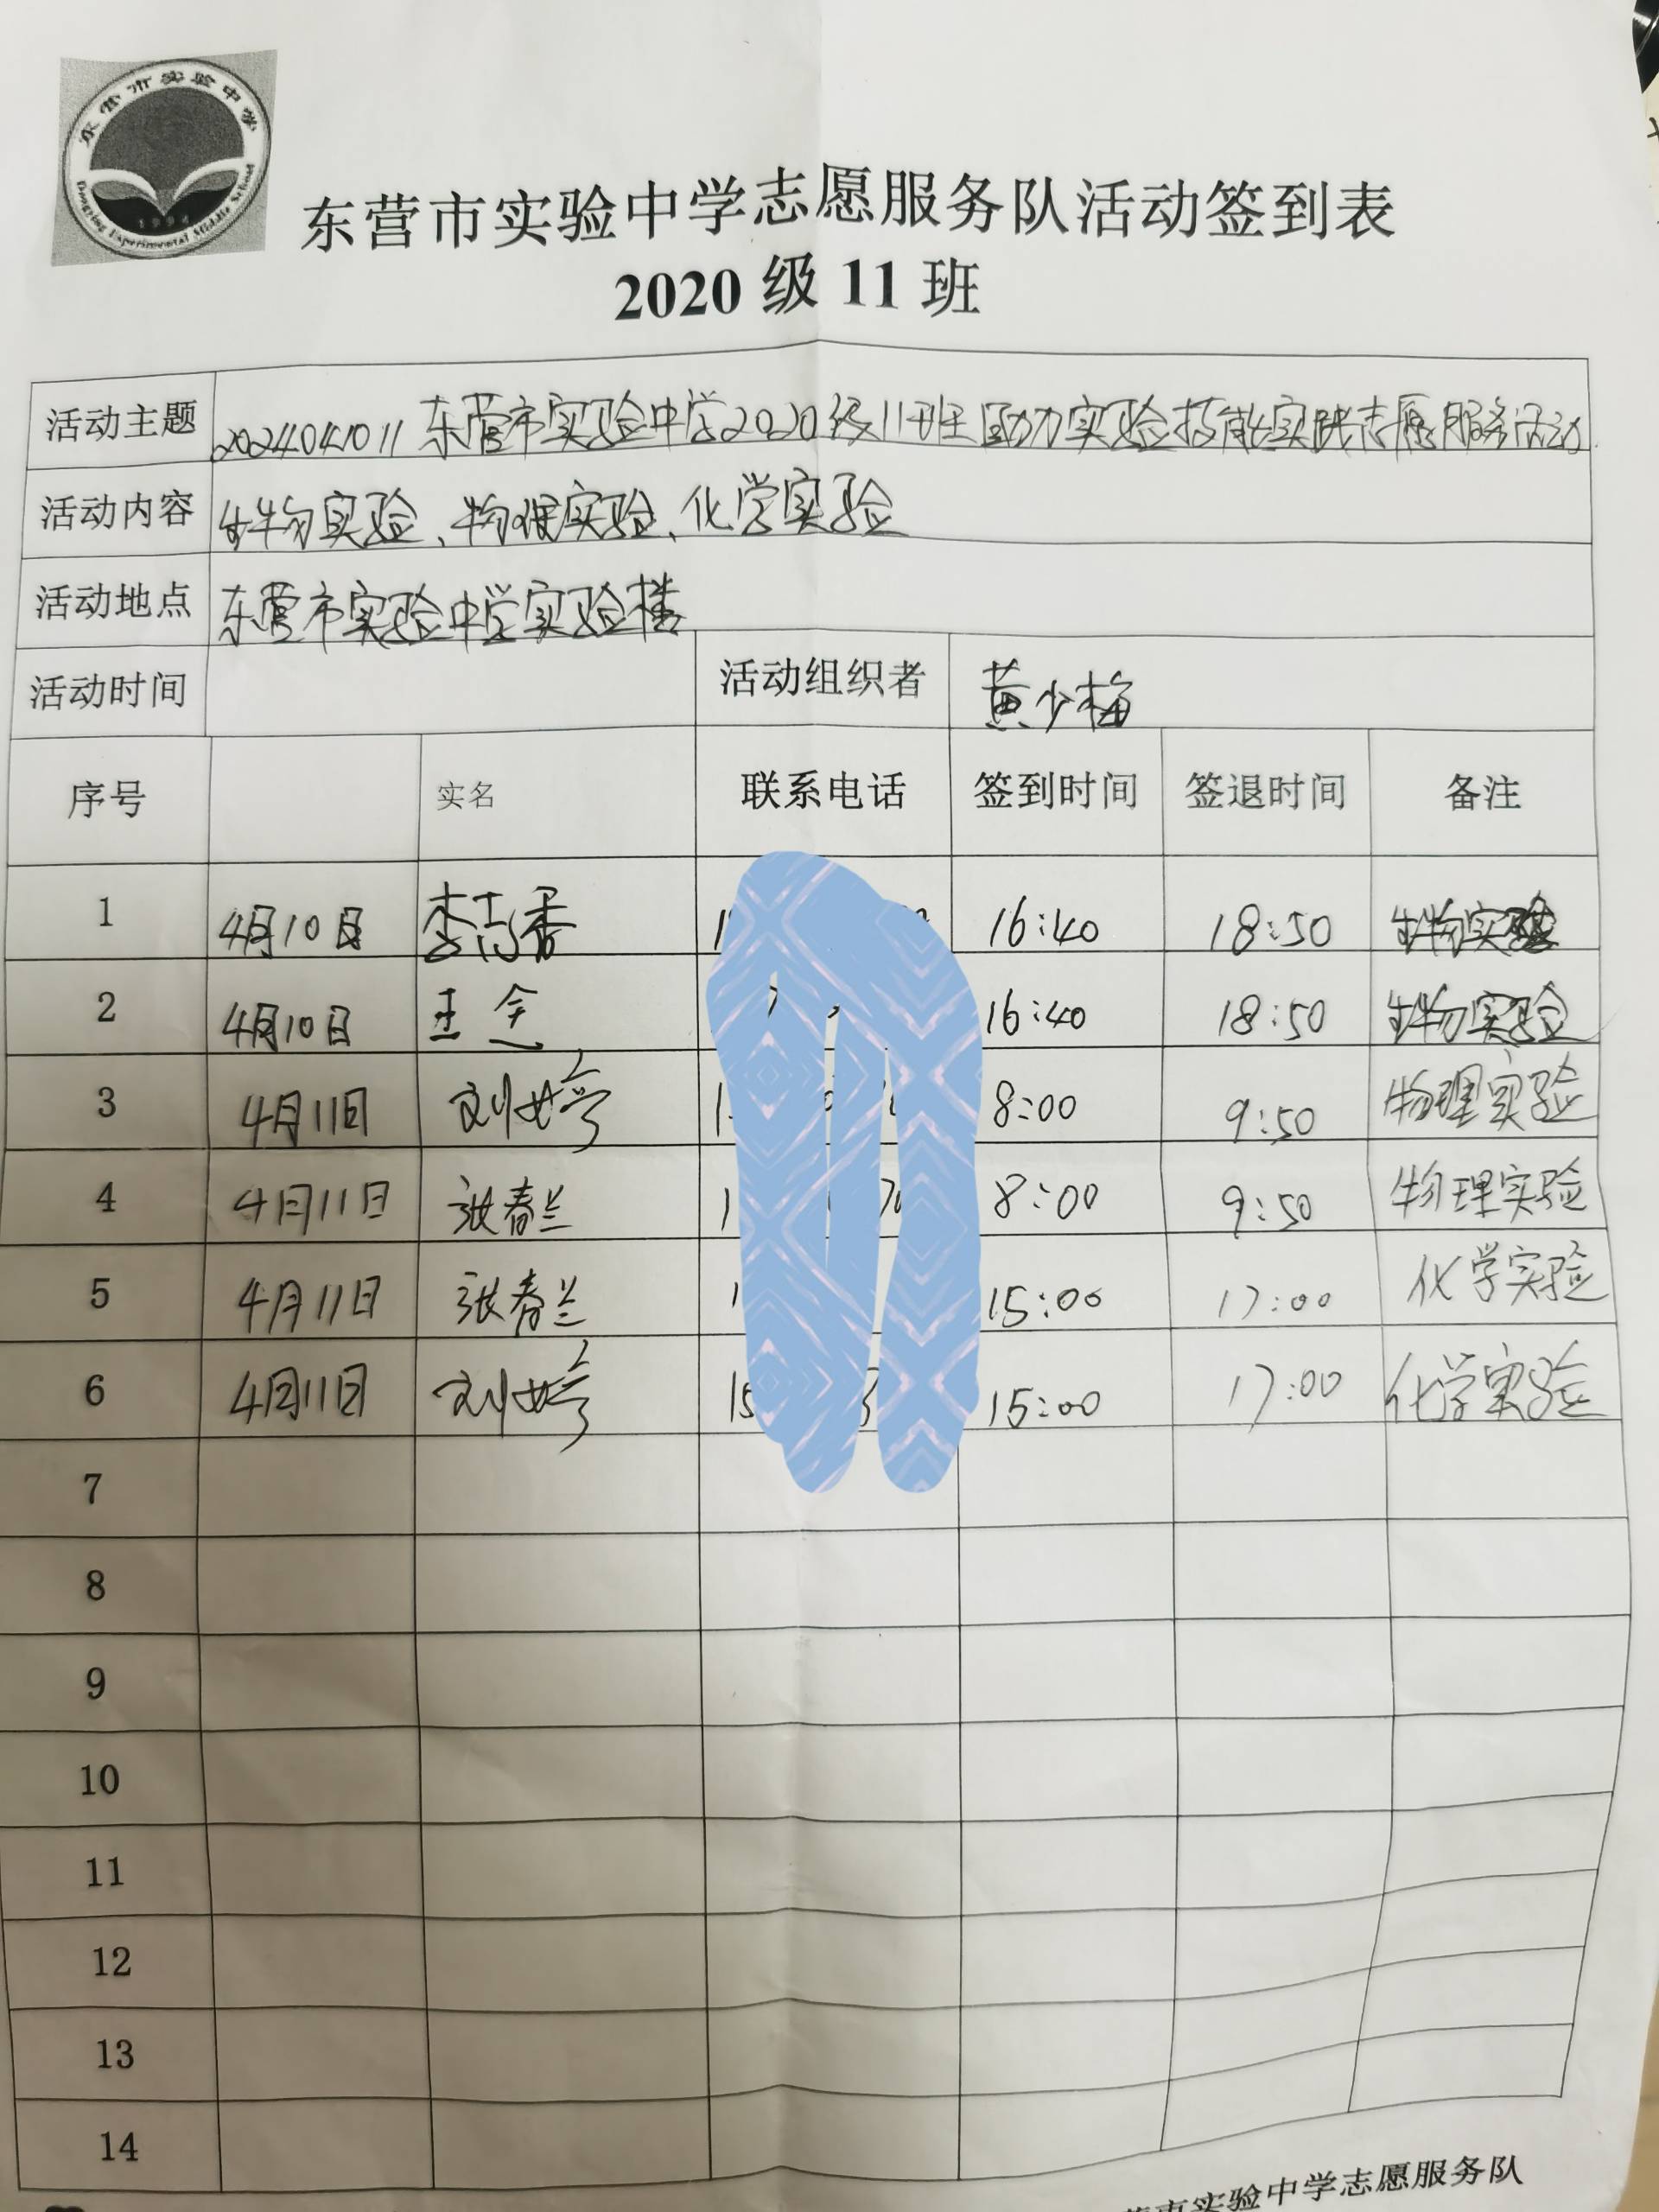 东营市实验中学
Dongying Experimental Middle School
1994
东营市实验中学志愿服务队活动签到表
2020 级 11 班
活动主题 2024041011 东营市实验中学2020级11班助力实验技能实践志愿服务活动
活动内容 生物实验、物理实验、化学实验
活动地点 东营市实验中学实验楼
活动时间 活动组织者 黄少梅
序号 实名 联系电话 签到时间 签退时间 备注
1 4月10日 16:40 18:50 生物实验
2 4月10日 16:40 18:50 生物实验
3 4月11日 刘婷 8:00 9:50 物理实验
4 4月11日 张春兰 8:00 9:50 物理实验
5 4月11日 张春兰 15:00 17:00 化学实验
6 4月11日 刘婷 15:00 17:00 化学实验
7
8
9
10
11
12
13
14
市实验中学志愿服务队